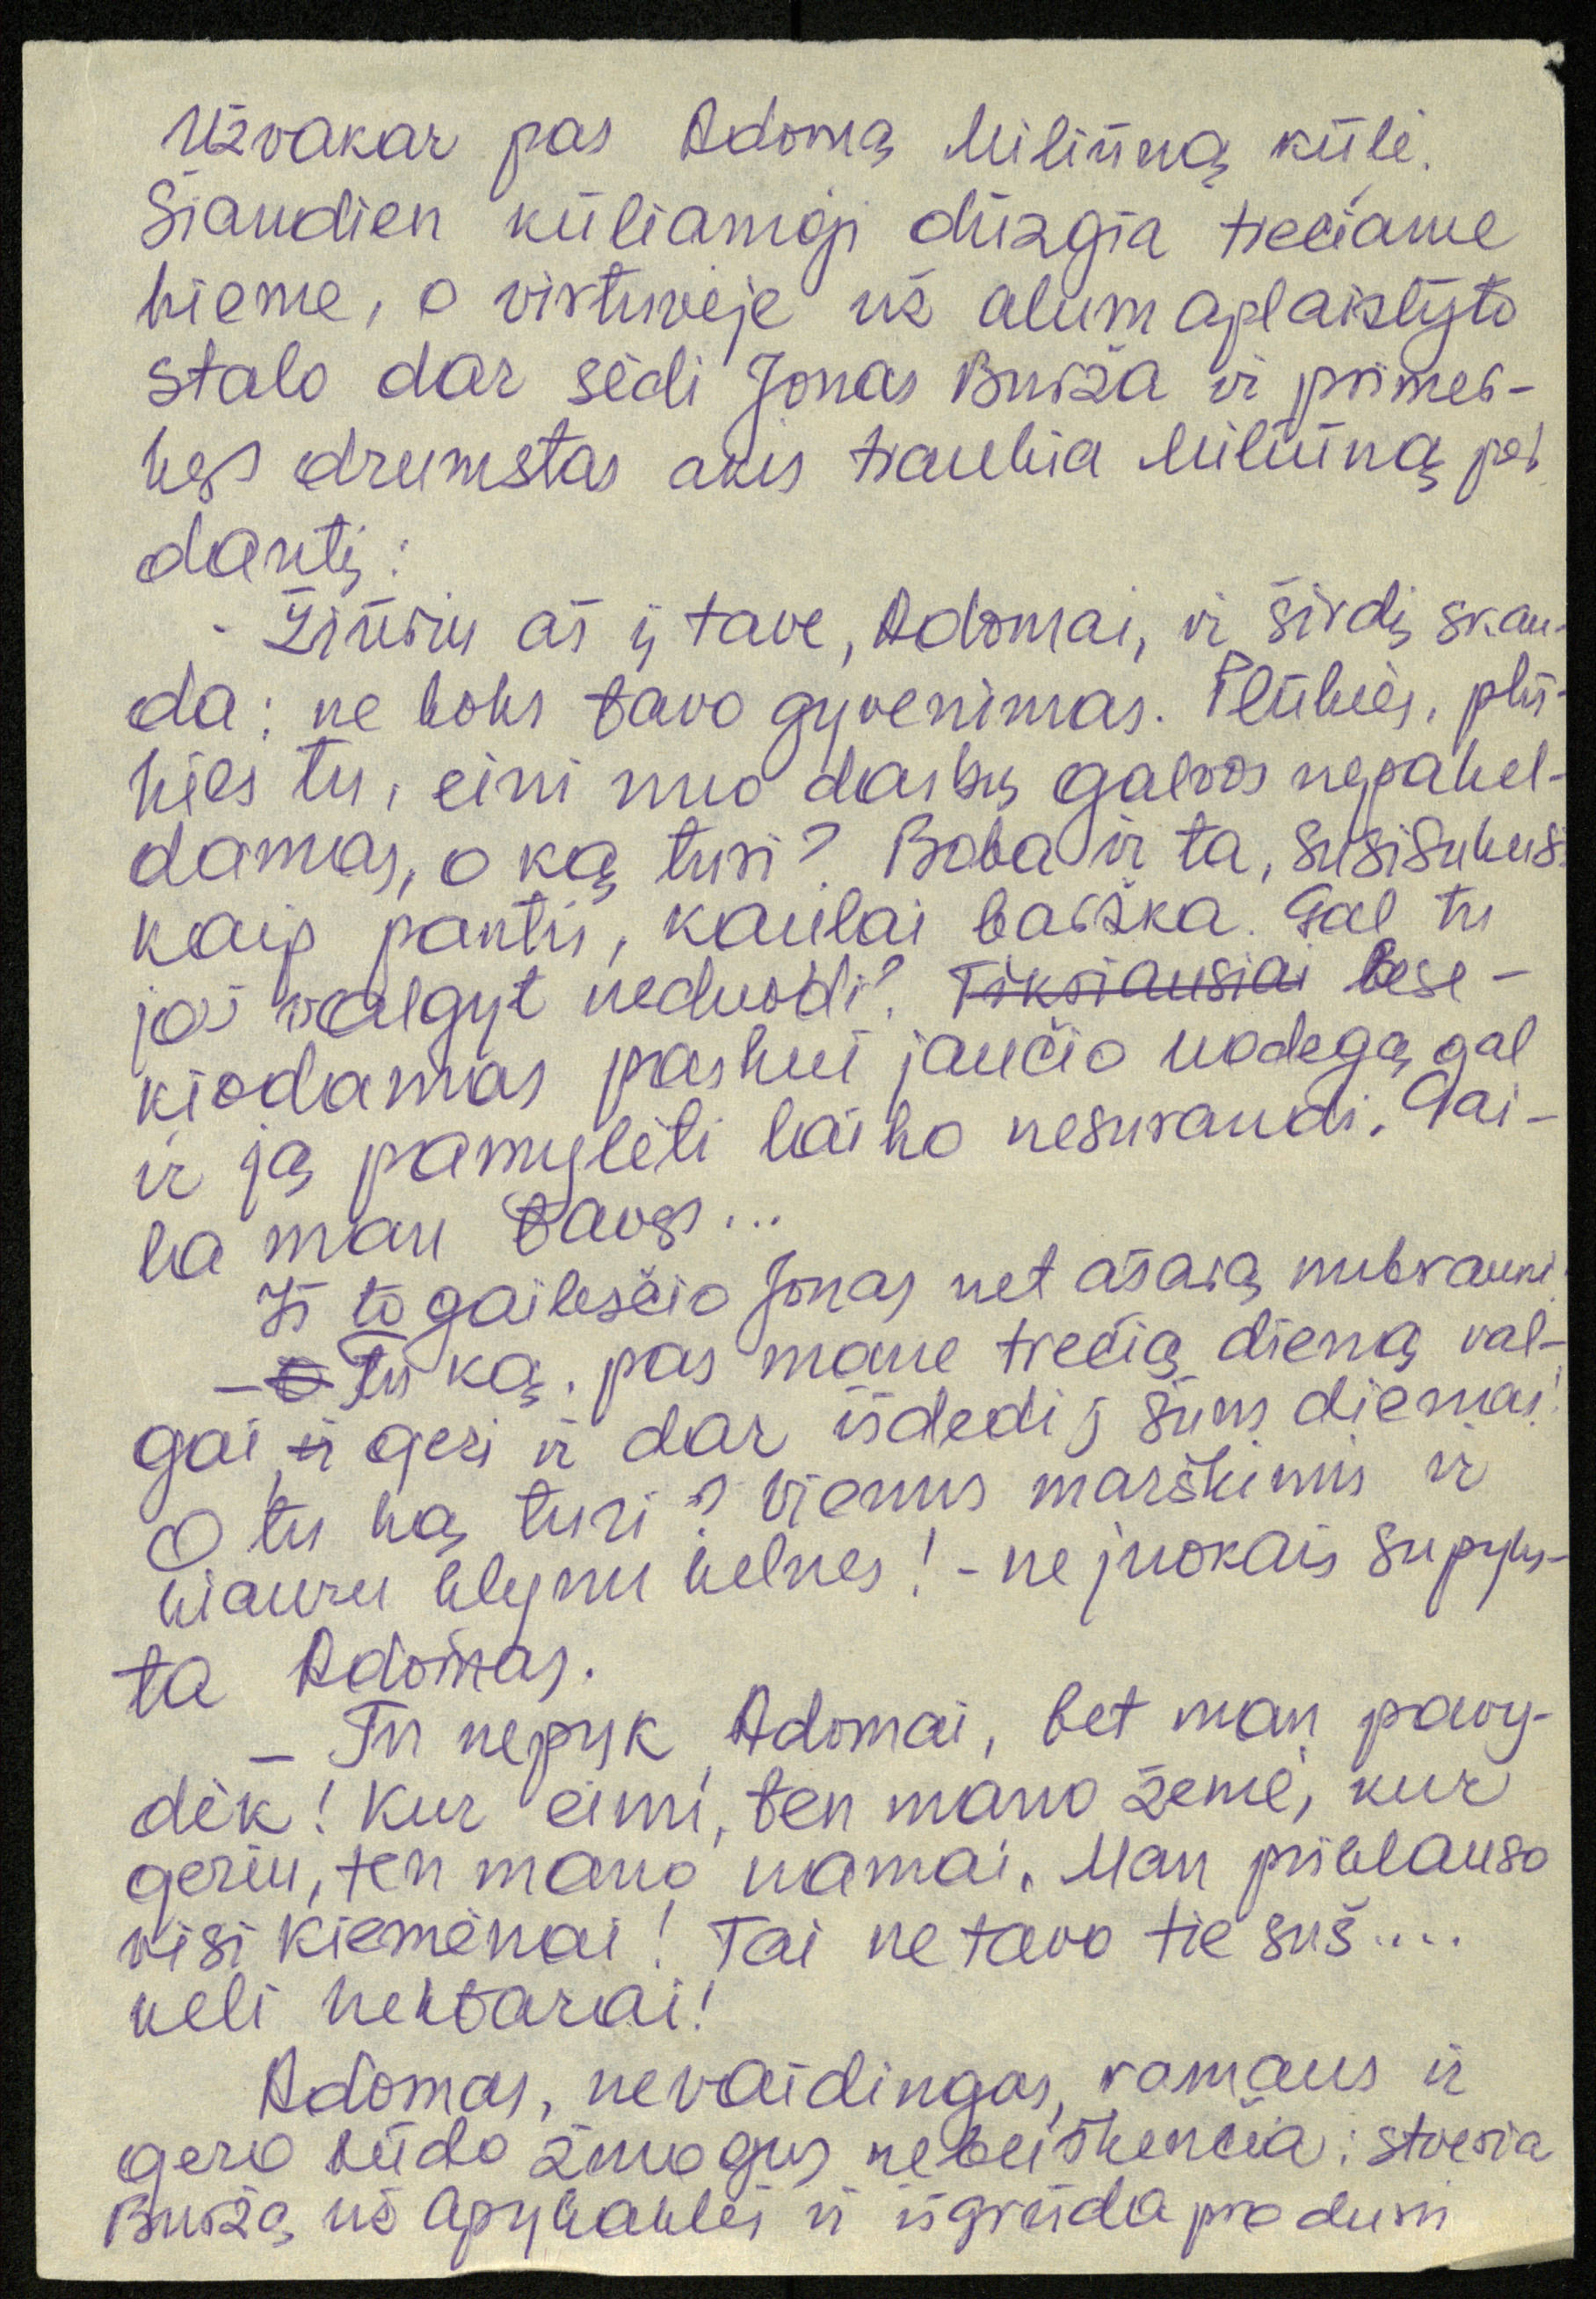 Užvakar pas Adomą Miliūną kūlė.
Šiandien kūliamoji dūzgia trečiame
kieme, o virtuvėje už alum aplaistyto
stalo dar sėdi Jonas Burža ir primer-
kęs drumstas akis traukia Miliūną per
dantį:
- Žiūriu aš į tave, Adomai, ir širdį skau-
da: ne koks tavo gyvenimas. Plūkies, plū-
kies tu, eini nuo darbų galvos nepakel-
damas, o ką turi? Boba ir ta, susisukus
kaip pantis, kaulai barška. Gal tu
jai valgyt neduodi? Tikriausiai bese-
kiodamas paskui jaučio uodegą gal
ir ją pamylėti laiko nesurandi. Gai-
la man tavęs...
Iš to gailesčio Jonas net ašarą nubraukė.
- O Tu ką, pas mane trečią dieną val-
gai, ir geri ir dar išdedi į šuns dienas!
O tu ką turi? Vienus marškinius ir
kiauru klynu kelnes! - ne juokais supyks-
ta Adomas.
- Tu nepyk, Adomai, bet man pavy-
dėk! Kur einu, ten mano žemė, kur
geriu, ten mano namai. Man priklauso
visi kiemėnai! Tai ne tavo tie suš....
keli hektarai!
Adomas, nevaidingas, ramaus ir
gero būdo žmogus nebeiškenčia: stveria
Buržą už apykaklės ir išgrūda pro duris